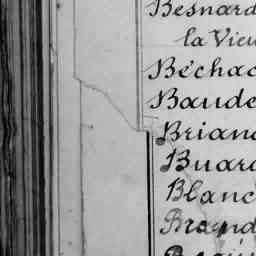 Besnard
la Vieu
Béchac
Baude
Briand
Buard
Blanc
Brand